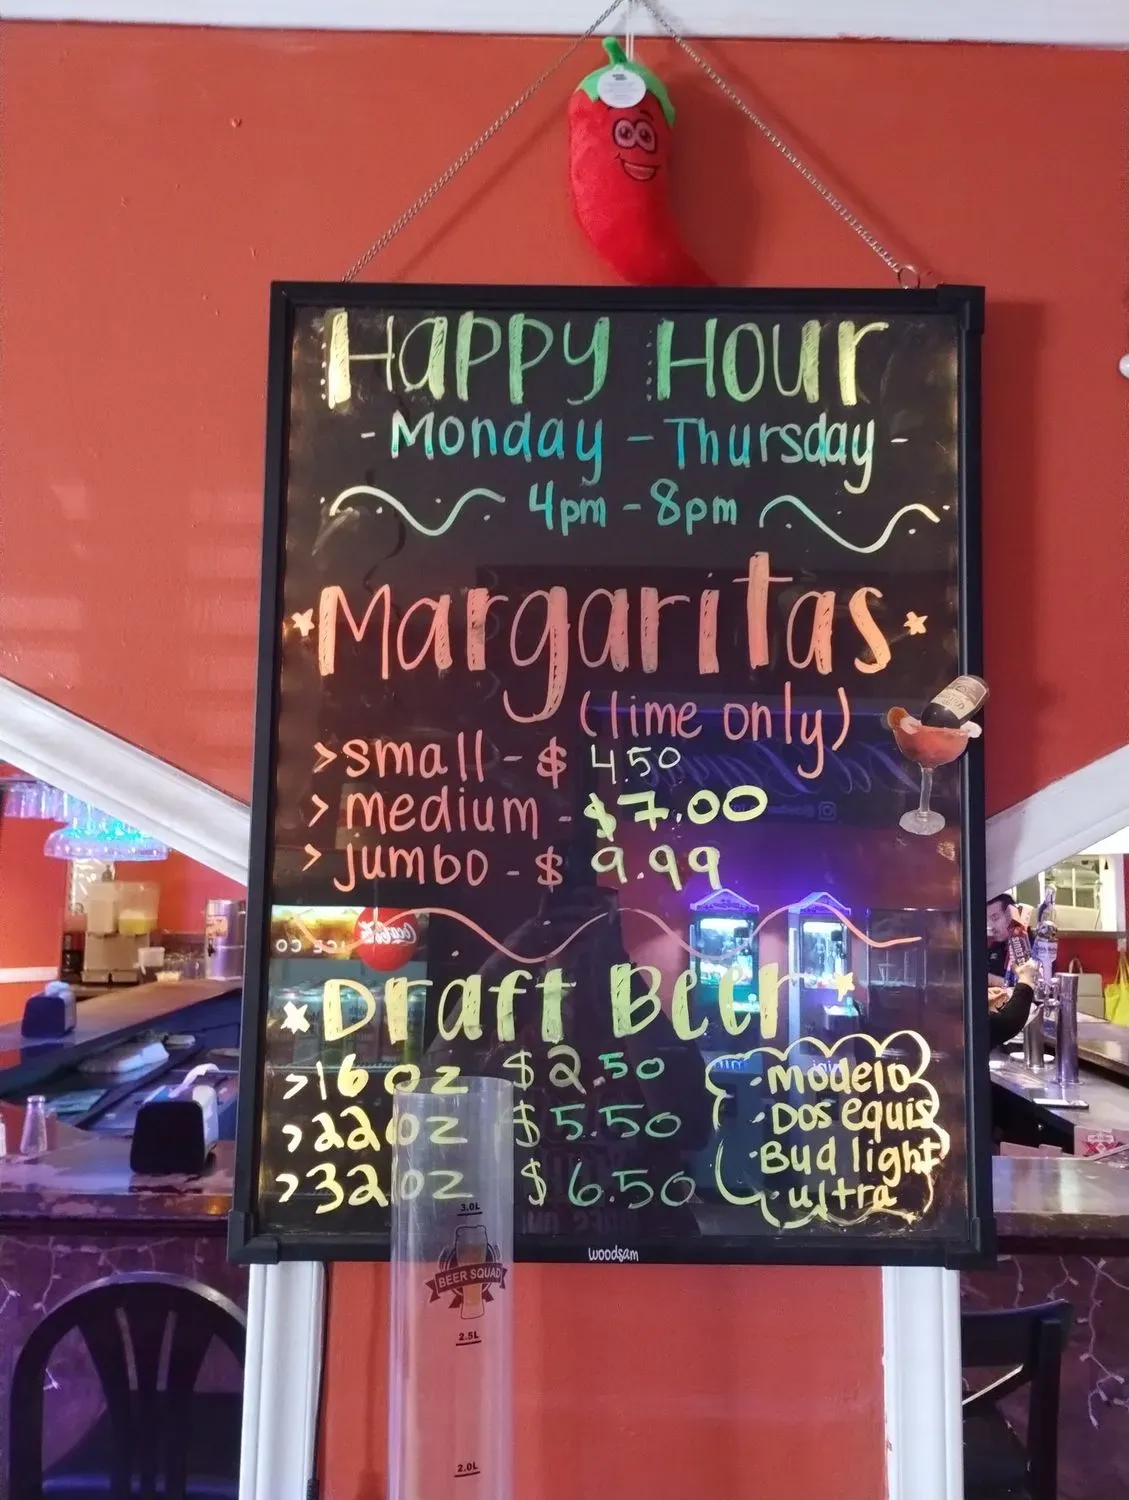 Happy Hour
- Monday - Thursday -
4pm - 8pm
Margaritas
(lime only)
> small - $ 4.50
> medium - $7.00
> jumbo - $ 9.99
Draft Beer
> 16 oz $2.50
> 22oz $5.50
> 32oz $6.50
· modelo
· Dos equis
· Bud light
· ultra
woodsam
3.0L
BEER SQUAD
2.5L
2.0L
Coca-Cola
ICE CO